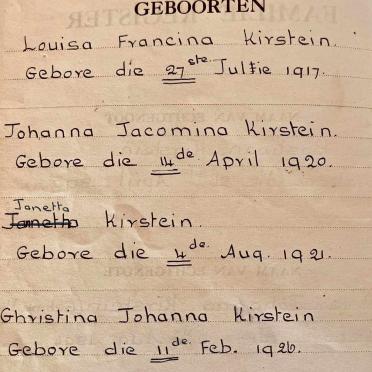 GEBOORTEN
Louisa Francina Kirstein.
Gebore die 27ste Julie 1917.
Johanna Jacomina Kirstein.
Gebore die 14de April 1920.
Janetta
Kirstein.
Gebore die 4de. Aug. 1921.
Christina Johanna Kirstein
Gebore die 11de. Feb. 1926.